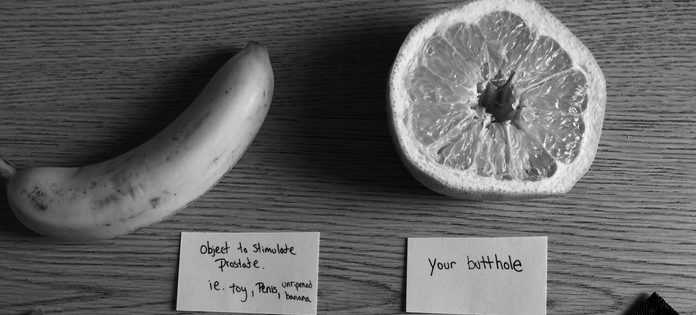 Object to stimulate
Prostate.
ie. toy, Penis, unripened
banana
your butthole